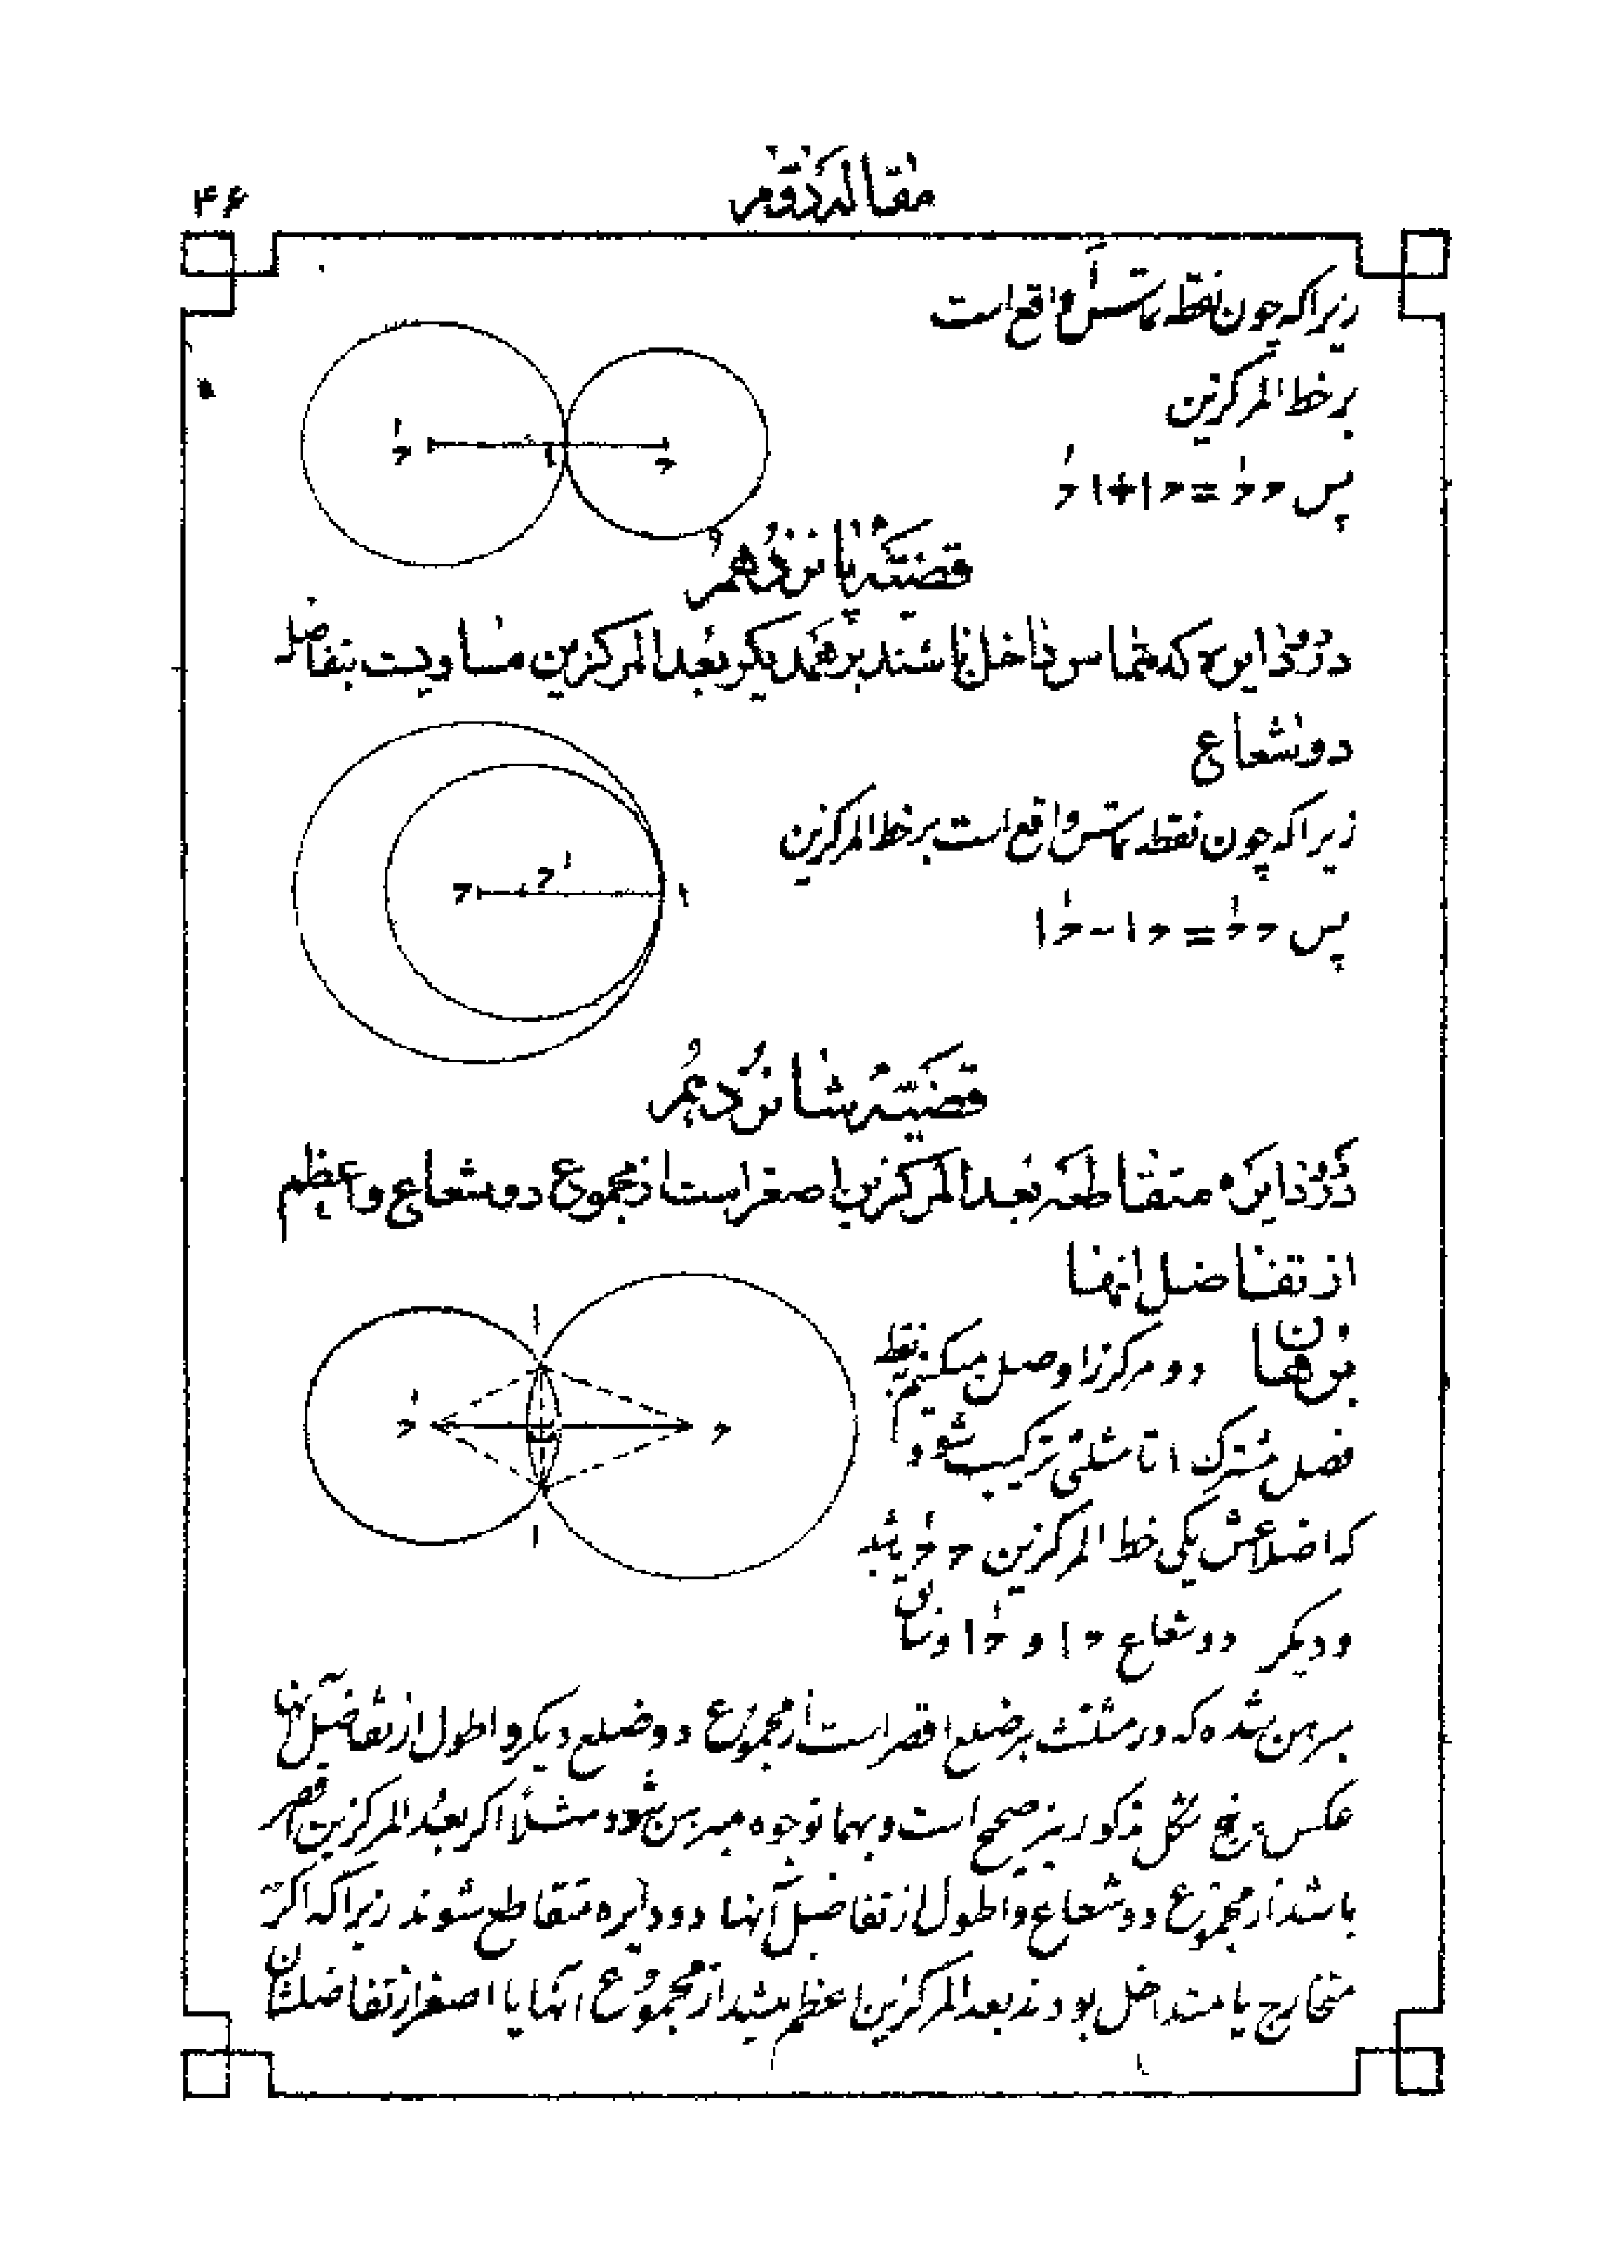 مقاله دوم
۴۶
زیرا که چون نقطه تماس واقع است
بر خط المرکزین
پس ححَ = حا + احَ
قضیّه پانزدهم
در دو دایره که مماس داخل باشند بر همدیگر بعد المرکزین مساویست بتفاضل
دو شعاع
زیرا که چون نقطه تماس واقع است بر خط المرکزین
پس ححَ = حا - حَا
قضیّه شانزدهم
در دو دایره متقاطعه بعد المرکزین اصغر است از مجموع دو شعاع و اعظم
از تفاضل انها
برهان دو مرکز را وصل میکنیم بنقطه
فصل مشترک ا تا مثلثی ترکیب شود
که اضلاعش یکی خط المرکزین ححَ باشد
و دیگر دو شعاع حا و حَا و سابق
مبرهن شده که در مثلث هر ضلع اقصر است از مجموع دو ضلع دیگر و اطول از تفاضل آنها
عکس شکل مذکور نیز صحیح است و بهمانوجوه مبرهن شود مثلاً اکر بعد المرکزین اقصر
باشد از مجموع دو شعاع و اطول از تفاضل آنها دو دایره متقاطع شوند زیرا که اکر
متخارج یا متداخل بودند بعد المرکزین اعظم میشد از مجموع انها یا اصغر از تفاضلشان
حَ
ا
ح
ح
حَ
ا
ا
حَ
ح
ا